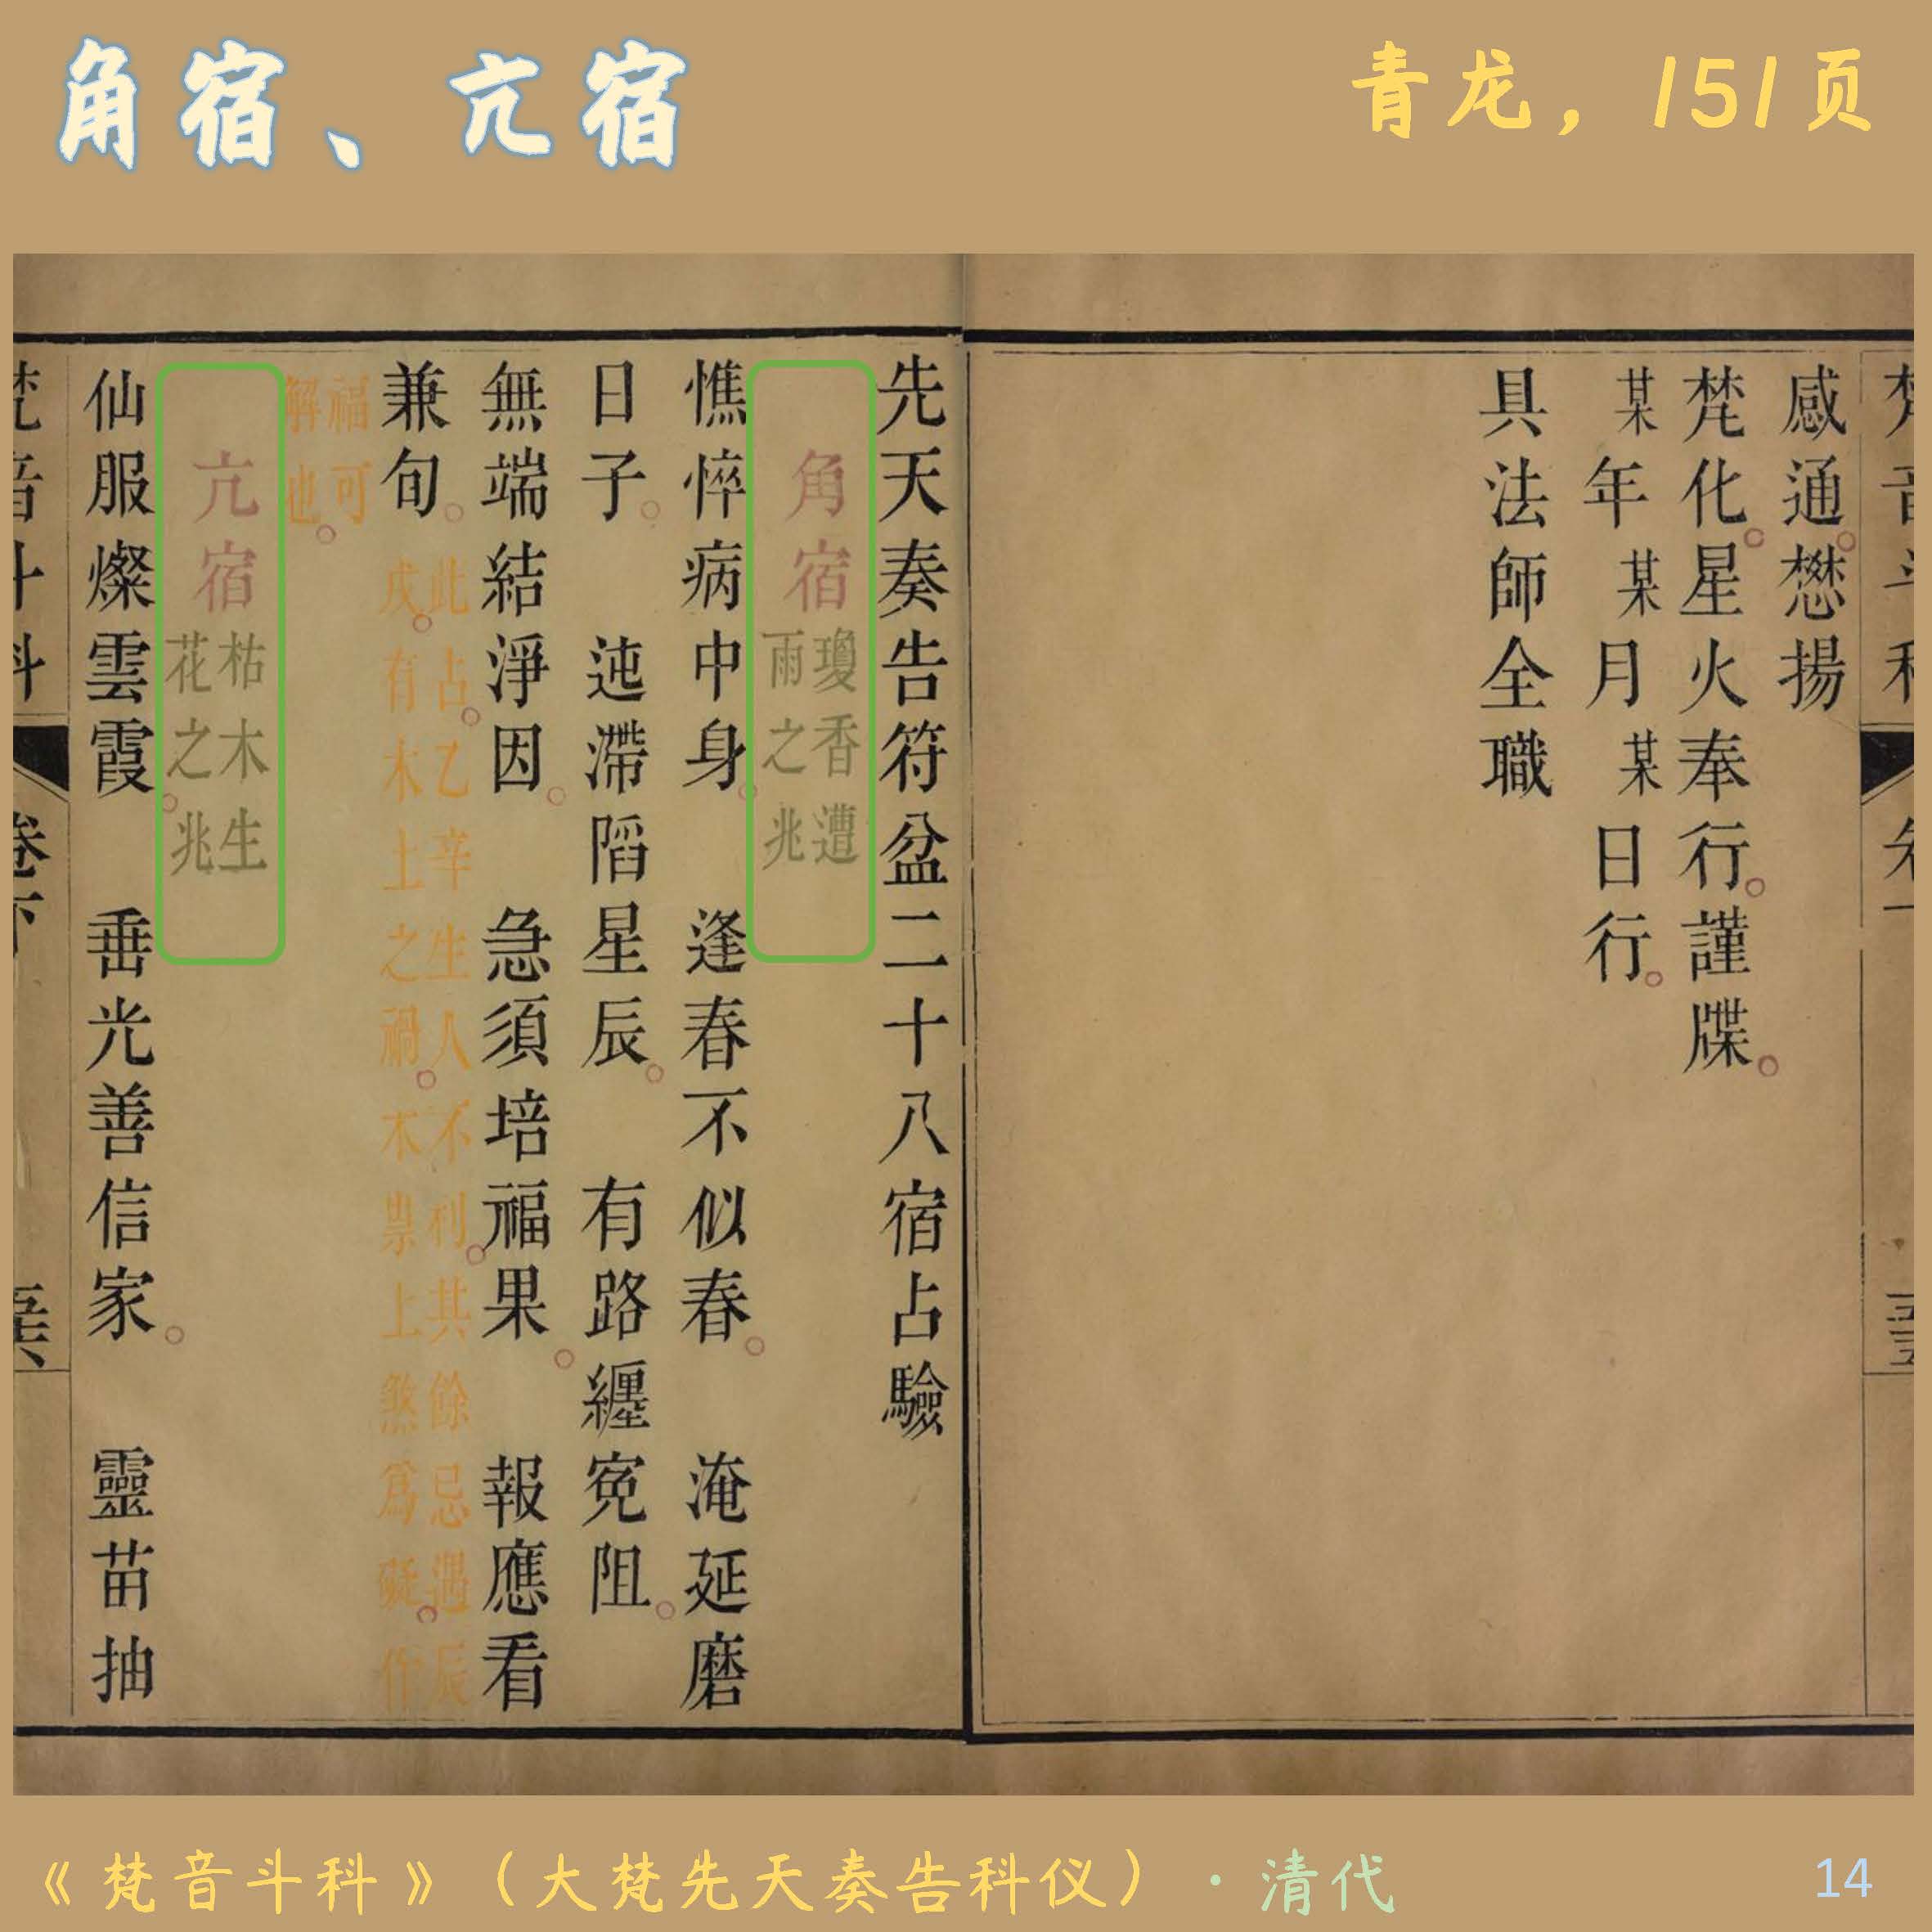 角宿、亢宿
青龙，151页
感通。懋揚
梵化。星火奉行。謹牒。
某年某月某日行。
具法師全職
先天奏告符盆二十八宿占驗
角宿
瓊香遭
雨之兆
憔悴病中身。 逢春不似春。 淹延磨
日子。 迍滯蹈星辰。 有路纏寃阻。
無端結淨因。 急須培福果。 報應看
兼旬。
此占。乙辛生人不利。其餘忌遇辰
戌。有木上之禍。木祟上煞爲礙。作
福可
解也。
亢宿
枯木生
花之兆
仙服燦雲霞。 垂光善信家。 靈苗抽
《梵音斗科》（大梵先天奏告科仪）·清代
14